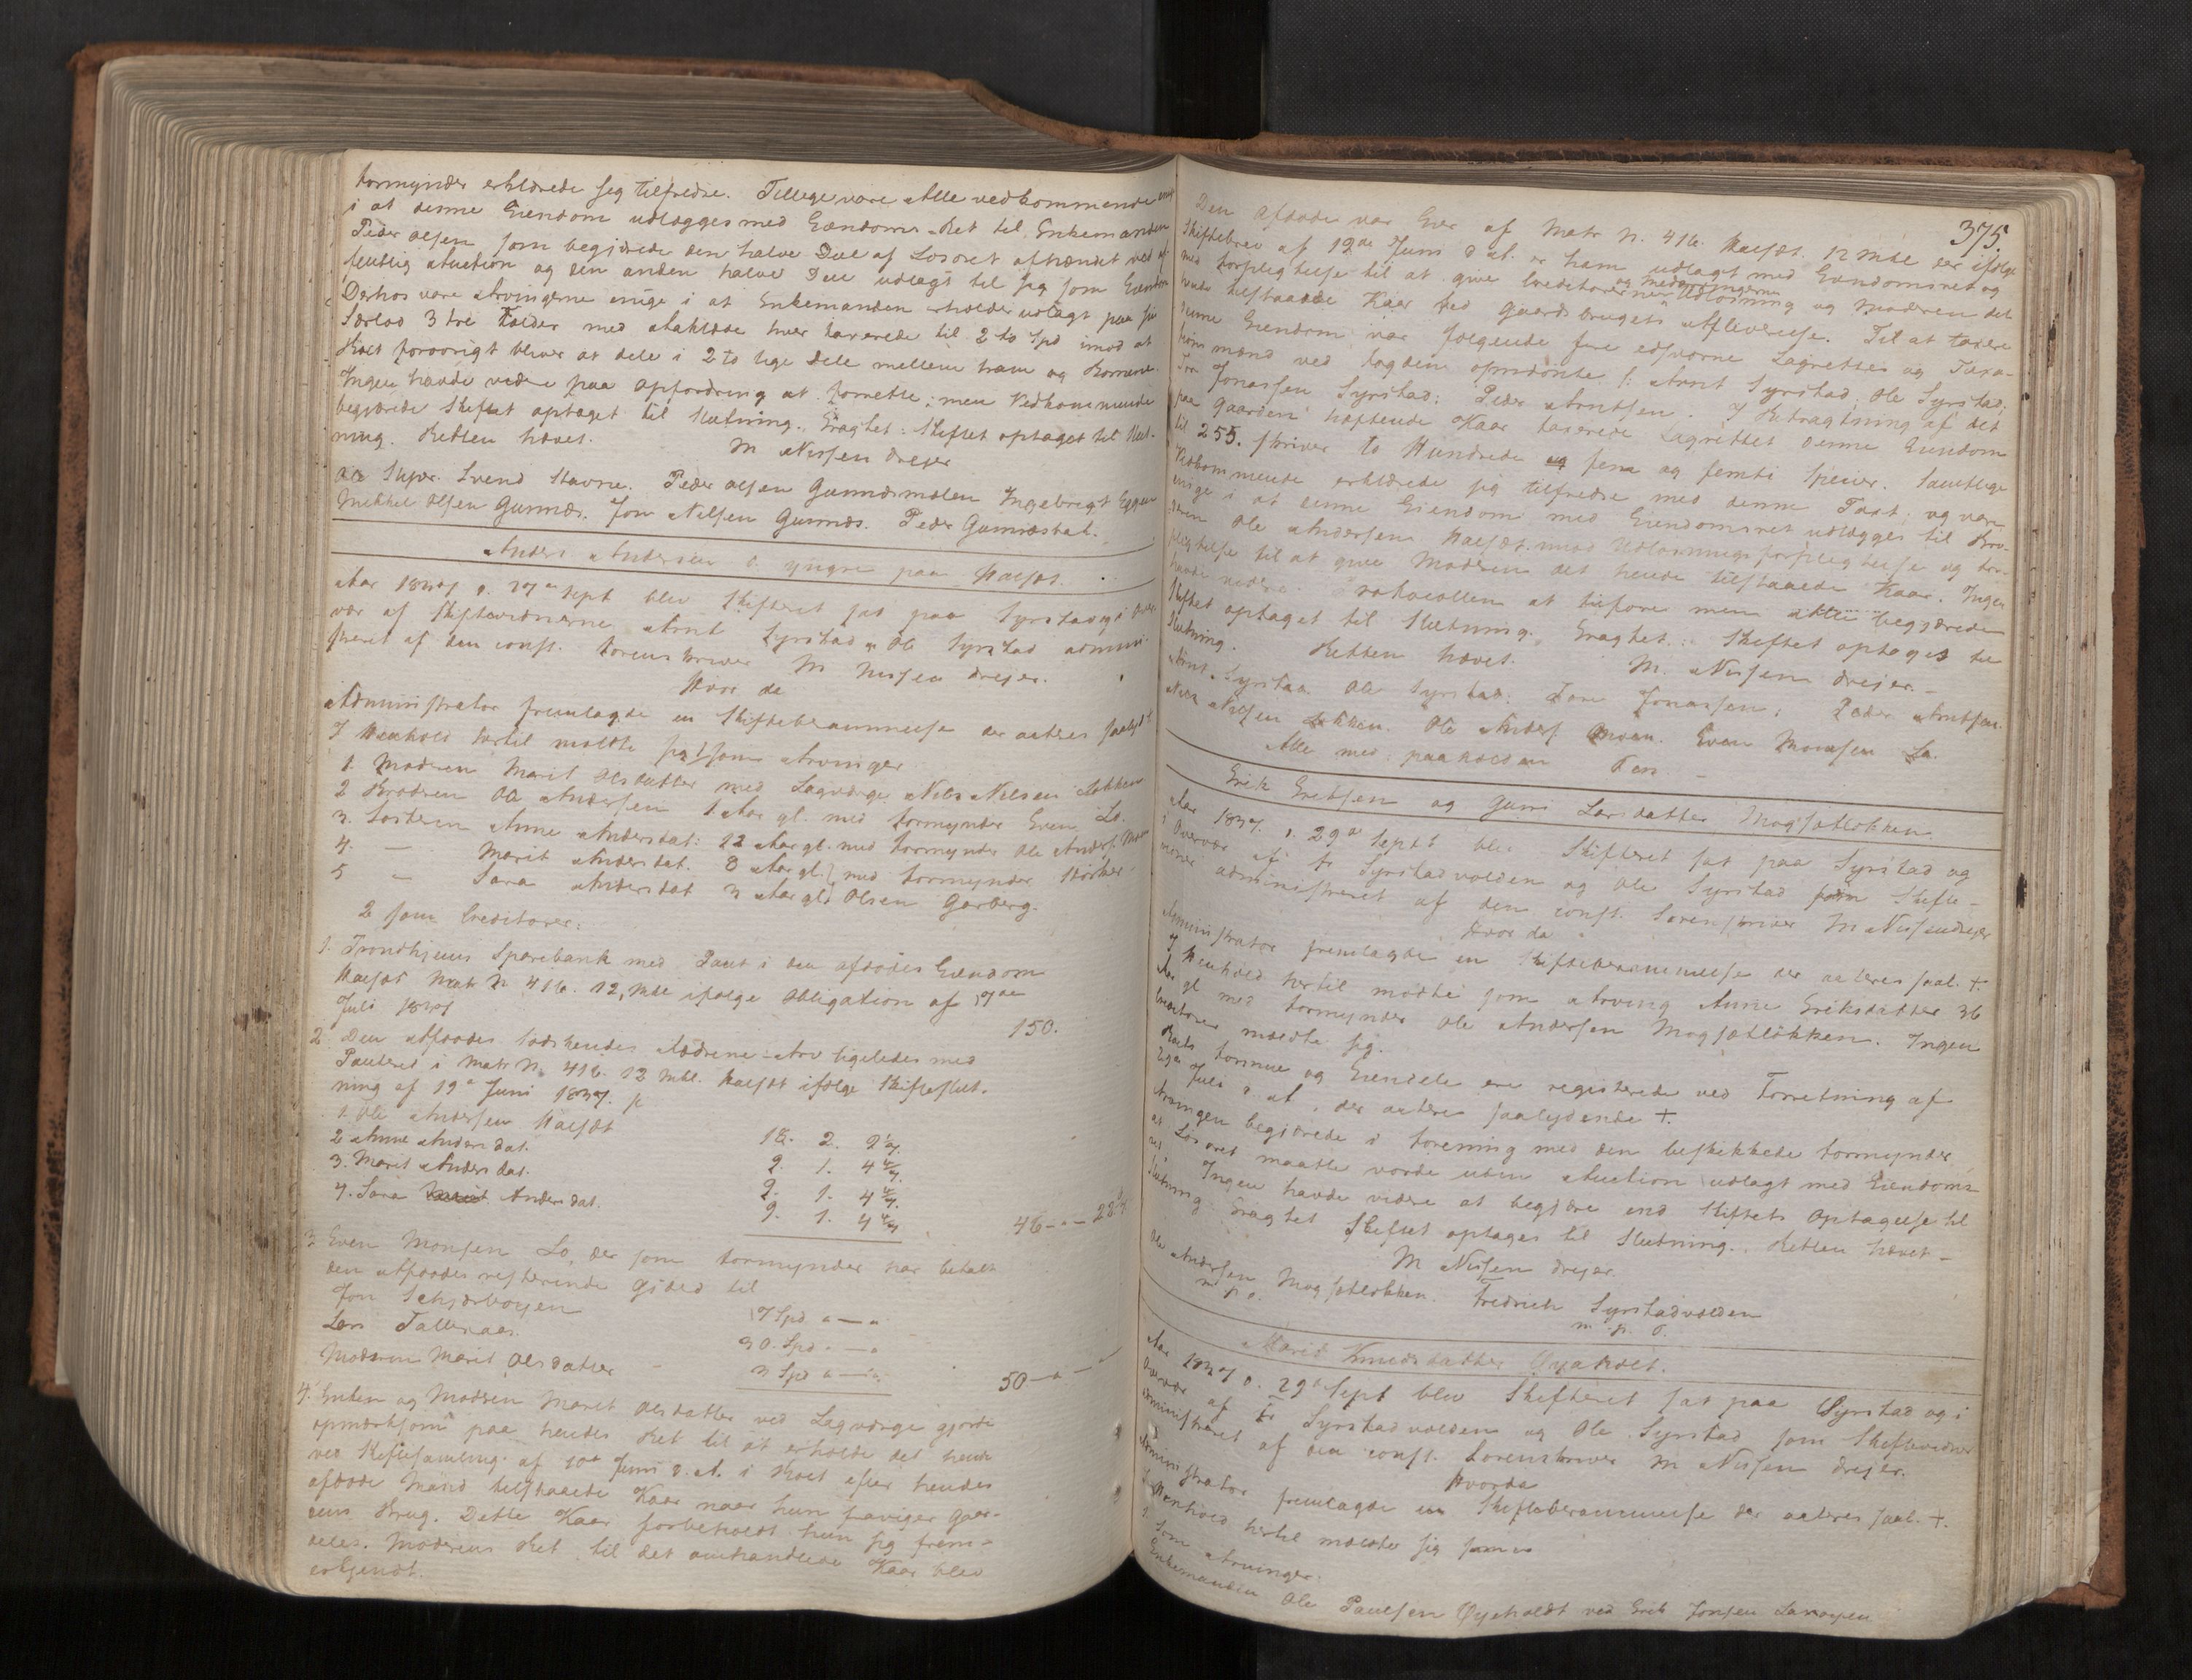 formynder erklærede sig tilfredse. Tillige vare Alle vedkommende enige
i at denne Eiendom udlægges med Eiendoms Ret til Enkemanden
Peder Olsen som begjærede den halve Deel af Løsøret afhændet ved of-
fentlig Auction og den anden halve Deel udlagt til sig som Eiendom
Derhos vare Arvingerne enige i at Enkemanden erholder udlagt paa sin
Særlod 3 tre med hver taxerede til 2 to Spd imod at
Boet forøvrigt bliver at dele i 2 to lige Dele mellem ham og Børnene.
Ingen havde videre paa Opfordring at forrette; men Vedkommende
begjærede Skiftet optaget til Slutning. Eragtet: Skiftet optages til Slut-
ning. Retten hævet.
M Nissen Dreyer
Svend Stavne. Peder Olsen Ingebrigt Eggen
Mekkel Olsen Gunnes. Jon Nilsen Gunnes. Peder
Anders Andersen d. yngre paa Kalsæt.
Aar 1837 d. 27de Sept blev Skifteret sat paa Syrstad og i Over-
vær af Skiftevidnerne Arnt Syrstad og Ole Syrstad admini-
streret af den const. Sorenskriver M Nissen Dreyer.
Hvor da
Administrator fremlagde en Skifteberammelse der acteres saalyd.
I Henhold hertil meldte sig som Arvinger
1. Moderen Marit Olsdatter med Lagværge Nils Nilsen Løkken
2 Broderen Ole Andersen Aar gl. med formynder Even Lo.
3. Søsteren Anne Andersdat: 22 Aar gl. med formynder Ole Anders. Moen
4. — Marit Andersdat. 8 Aar gl. } med formynder
5 — Sara Andersdat 3 Aar gl } Olsen Garberg.
2 som Creditorer:
1. Trondhjems Sparebank med Pant i den afdødes Eiendom
Kalsæt Matr N 416. 12, Mkl ifølge Obligation af 7de
Juli 1837 150.
2 Den Afdødes Sødskendes Fædrene-Arv ligeledes med
Panteret i Matr N. 416. 12 Mkl. Kalsæt ifølge Skifteslut-
ning af 19de Juni 1837.
1. Ole Andersen Kalsæt 18. 2.
2 Anne Andersdat. 9. 1. 4
3. Marit Andersdat. 9. 1. 4
4. Sara Andersdat. 9. 1. 4 46 — " — 22
3. Even Monsen Lo, der som formynder har betalt
den Afdødes resterende Gjeld til
Jon 17 Spd " — "
Lars 30. Spd " — "
Moderen Marit Olsdatter 3 Spd " — " 50 — " —
4. Enken og Moderen Marit Olsdatter ved Lagværge gjorde
opmærksom paa hendes Ret til at erholde det hende
ved Skiftesamling af 10de Juni d. A. i Boet efter hendes
afdøde Mand tilstaaede Kaar naar hun fraviger Gaar-
dens Brug. Dette Kaar forbeholdt hun sig frem-
deles. Moderens Ret til det omhandlede Kaar blev
erkjendt.
375.
Den Afdøde var Eier af Matr N. 416. Kalsæt. 12 Mkl der ifølge
Skiftebrev af 19de Juni d A. er ham udlagt med Eiendomsret og
med forpligtelse til at give Creditorerne og medarvingerne Udløsning og Moderen det
hende tilstaaede Kaar ved Gaardsbrugets Aflevereelse. Til at taxere
denne Eiendom var følgende fire edsvorne Lagrettes og Taxa-
tionsmænd ved Fogden opnævnte: Arnt Syrstad, Ole Syrstad;
Tore Jonassen Syrstad; Peder Arntsen. I Betragtning af det
paa Gaarden heftende Kaar taxerede Lagrettet denne Eiendom
til 255. skriver to Hundrede fem og femti Specier. Samtlige
Vedkommende erklærede sig tilfredse med denne Taxt og vare
enige i at denne Eiendom med Eiendomsret udlægges til Bro-
deren Ole Andersen Kalsæt mod Udløsningsforpligtelse og for-
pligtelse til at give Moderen det hende tilstaaede Kaar. Ingen
havde videre Protocollen at tilføre men Alle begjærede
Skiftet optaget til Slutning. Eragtet: Skiftet optages til
Slutning. Retten hævet.
M. Nissen Dreyer. —
Arnt Syrstad Ole Syrstad. Tore Jonassen; Peder Arntsen.
Niels Nilsen Løkken. Ole Anders Moen. Even Monsen Lo.
Alle med paaholden Pen. —
Erik Eriksen og Guri Larsdatter Mogsætløkken
Aar 1837. d. 29de Sept blev Skifteret sat paa Syrstad og
i Overvær af Fr Syrstadvolden og Ole Syrstad som Skifte-
vidner administreret af den const. Sorenskriver M Nissen Dreyer
Hvor da
Administrator fremlagde en Skifteberammelse der acteres saal. +.
I Henhold hertil mødte som Arving Anne Eriksdatter 36
Aar gl med formynder Ole Andersen Mogsætløkken. Ingen
Creditorer meldte sig.
Boets formue og Eiendele ere registerede ved Forretning af
Juli d. A. der actere saalydende +.
Arvingen begjærede i forening med den beskikkede formynder
at Løsøret maatte vorde uden Auction udlagt med Eiendoms-
ret. Ingen havde videre at begjære end Skiftets Optagelse til
Slutning. Eragtet Skiftet optages til Slutning. Retten hævet —
M Nissen Dreyer.
Ole Andersen Mogsætløkken. Fredrich Syrstadvolden
m. p. P. m. p. P.
Marit Knudsdatter Øyaholt.
Aar 1837 d. 29de Sept blev Skifteret sat paa Syrstad og i
Overvær af Fr Syrstadvolden og Ole Syrstad som Skiftevidner
administreret af den const. Sorenskriver M Nissen Dreyer.
Hvorda
Administrator fremlagde en Skifteberammelse der acteres saal. +.
I Henhold hertil meldte sig
1 som Arvinger:
Enkemanden Ole Paulsen Øyeholdt ved Erik Jonsen